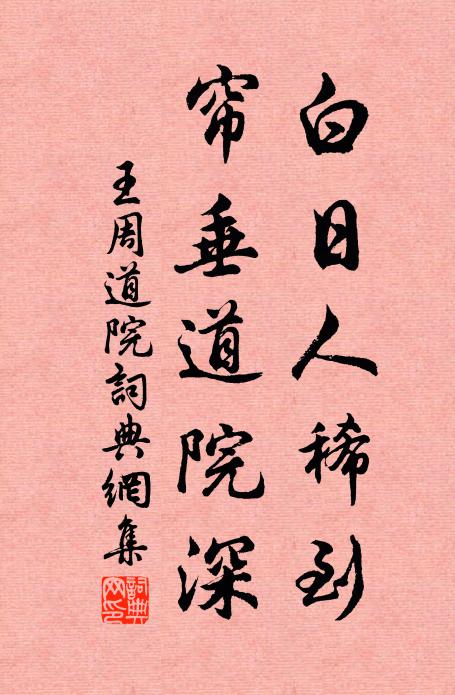 白日人稀到
帘垂道院深
王周道院詞典網集
詞典網印